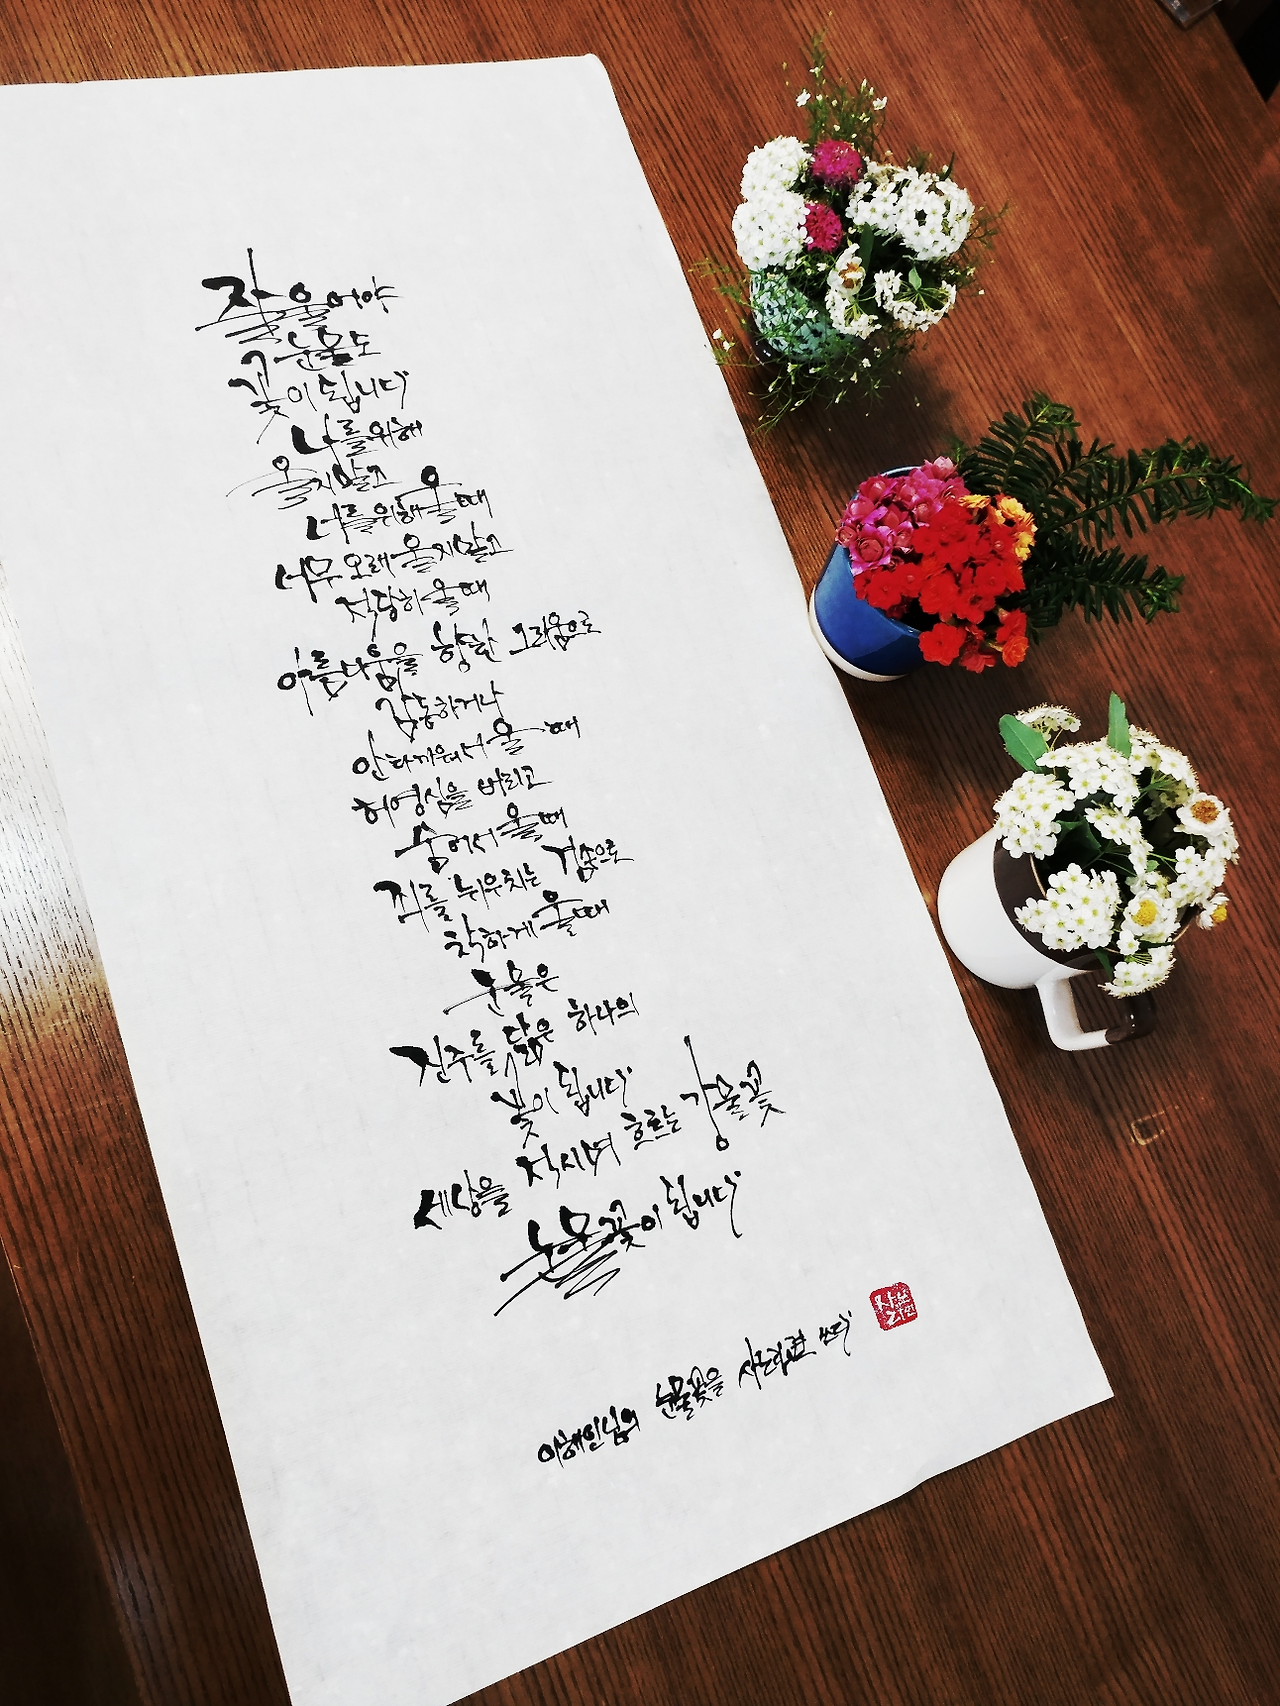 잘 울어야
눈물도
꽃이 됩니다
나를 위해
울지 말고
너를 위해 울 때
너무 오래 울지 말고
적당히 울 때
아름다움을 향한 그리움으로
감동하거나
안타까워서 울 때
허영심을 버리고
숨어서 울 때
죄를 뉘우치는 겸손으로
착하게 울 때
눈물은
진주를 닮은 하나의
꽃이 됩니다
세상을 적시며 흐르는 강물꽃
눈물꽃이 됩니다
이해인님의 눈물꽃을 쓰다